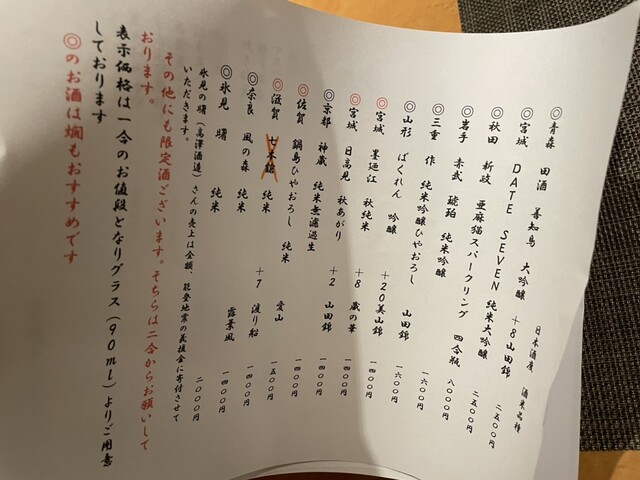 日本酒度 酒米品種
◎青森 田酒 善知鳥 大吟醸 +8 山田錦 二五〇〇円
◎宮城 DATE SEVEN 純米大吟醸 二五〇〇円
◎秋田 新政 亜麻猫スパークリング 四合瓶 八〇〇〇円
◎岩手 赤武 琥珀 純米吟醸 一六〇〇円
◎三重 作 純米吟醸ひやおろし 山田錦 一六〇〇円
◎山形 ばくれん 吟醸 +20 美山錦 一四〇〇円
◎宮城 墨廼江 秋純米 +8 蔵の華 一四〇〇円
◎宮城 日高見 秋あがり +2 山田錦 一四〇〇円
◎京都 神蔵 純米無濾過生 一四〇〇円
◎佐賀 鍋島ひやおろし 純米 愛山 一五〇〇円
◎滋賀 七本鎗 純米 +7 渡り船 一四〇〇円
◎奈良 風の森 純米 露葉風 一四〇〇円
◎氷見 曙 純米 二〇〇〇円
氷見の曙(高澤酒造)さんの売上は全額、能登地震の義援金に寄付させて
いただきます。
その他にも限定酒ございます。そちらは二合からお願いして
おります。
表示価格は一合のお値段となりグラス(90mL)よりご用意
しております
◎のお酒は燗もおすすめです